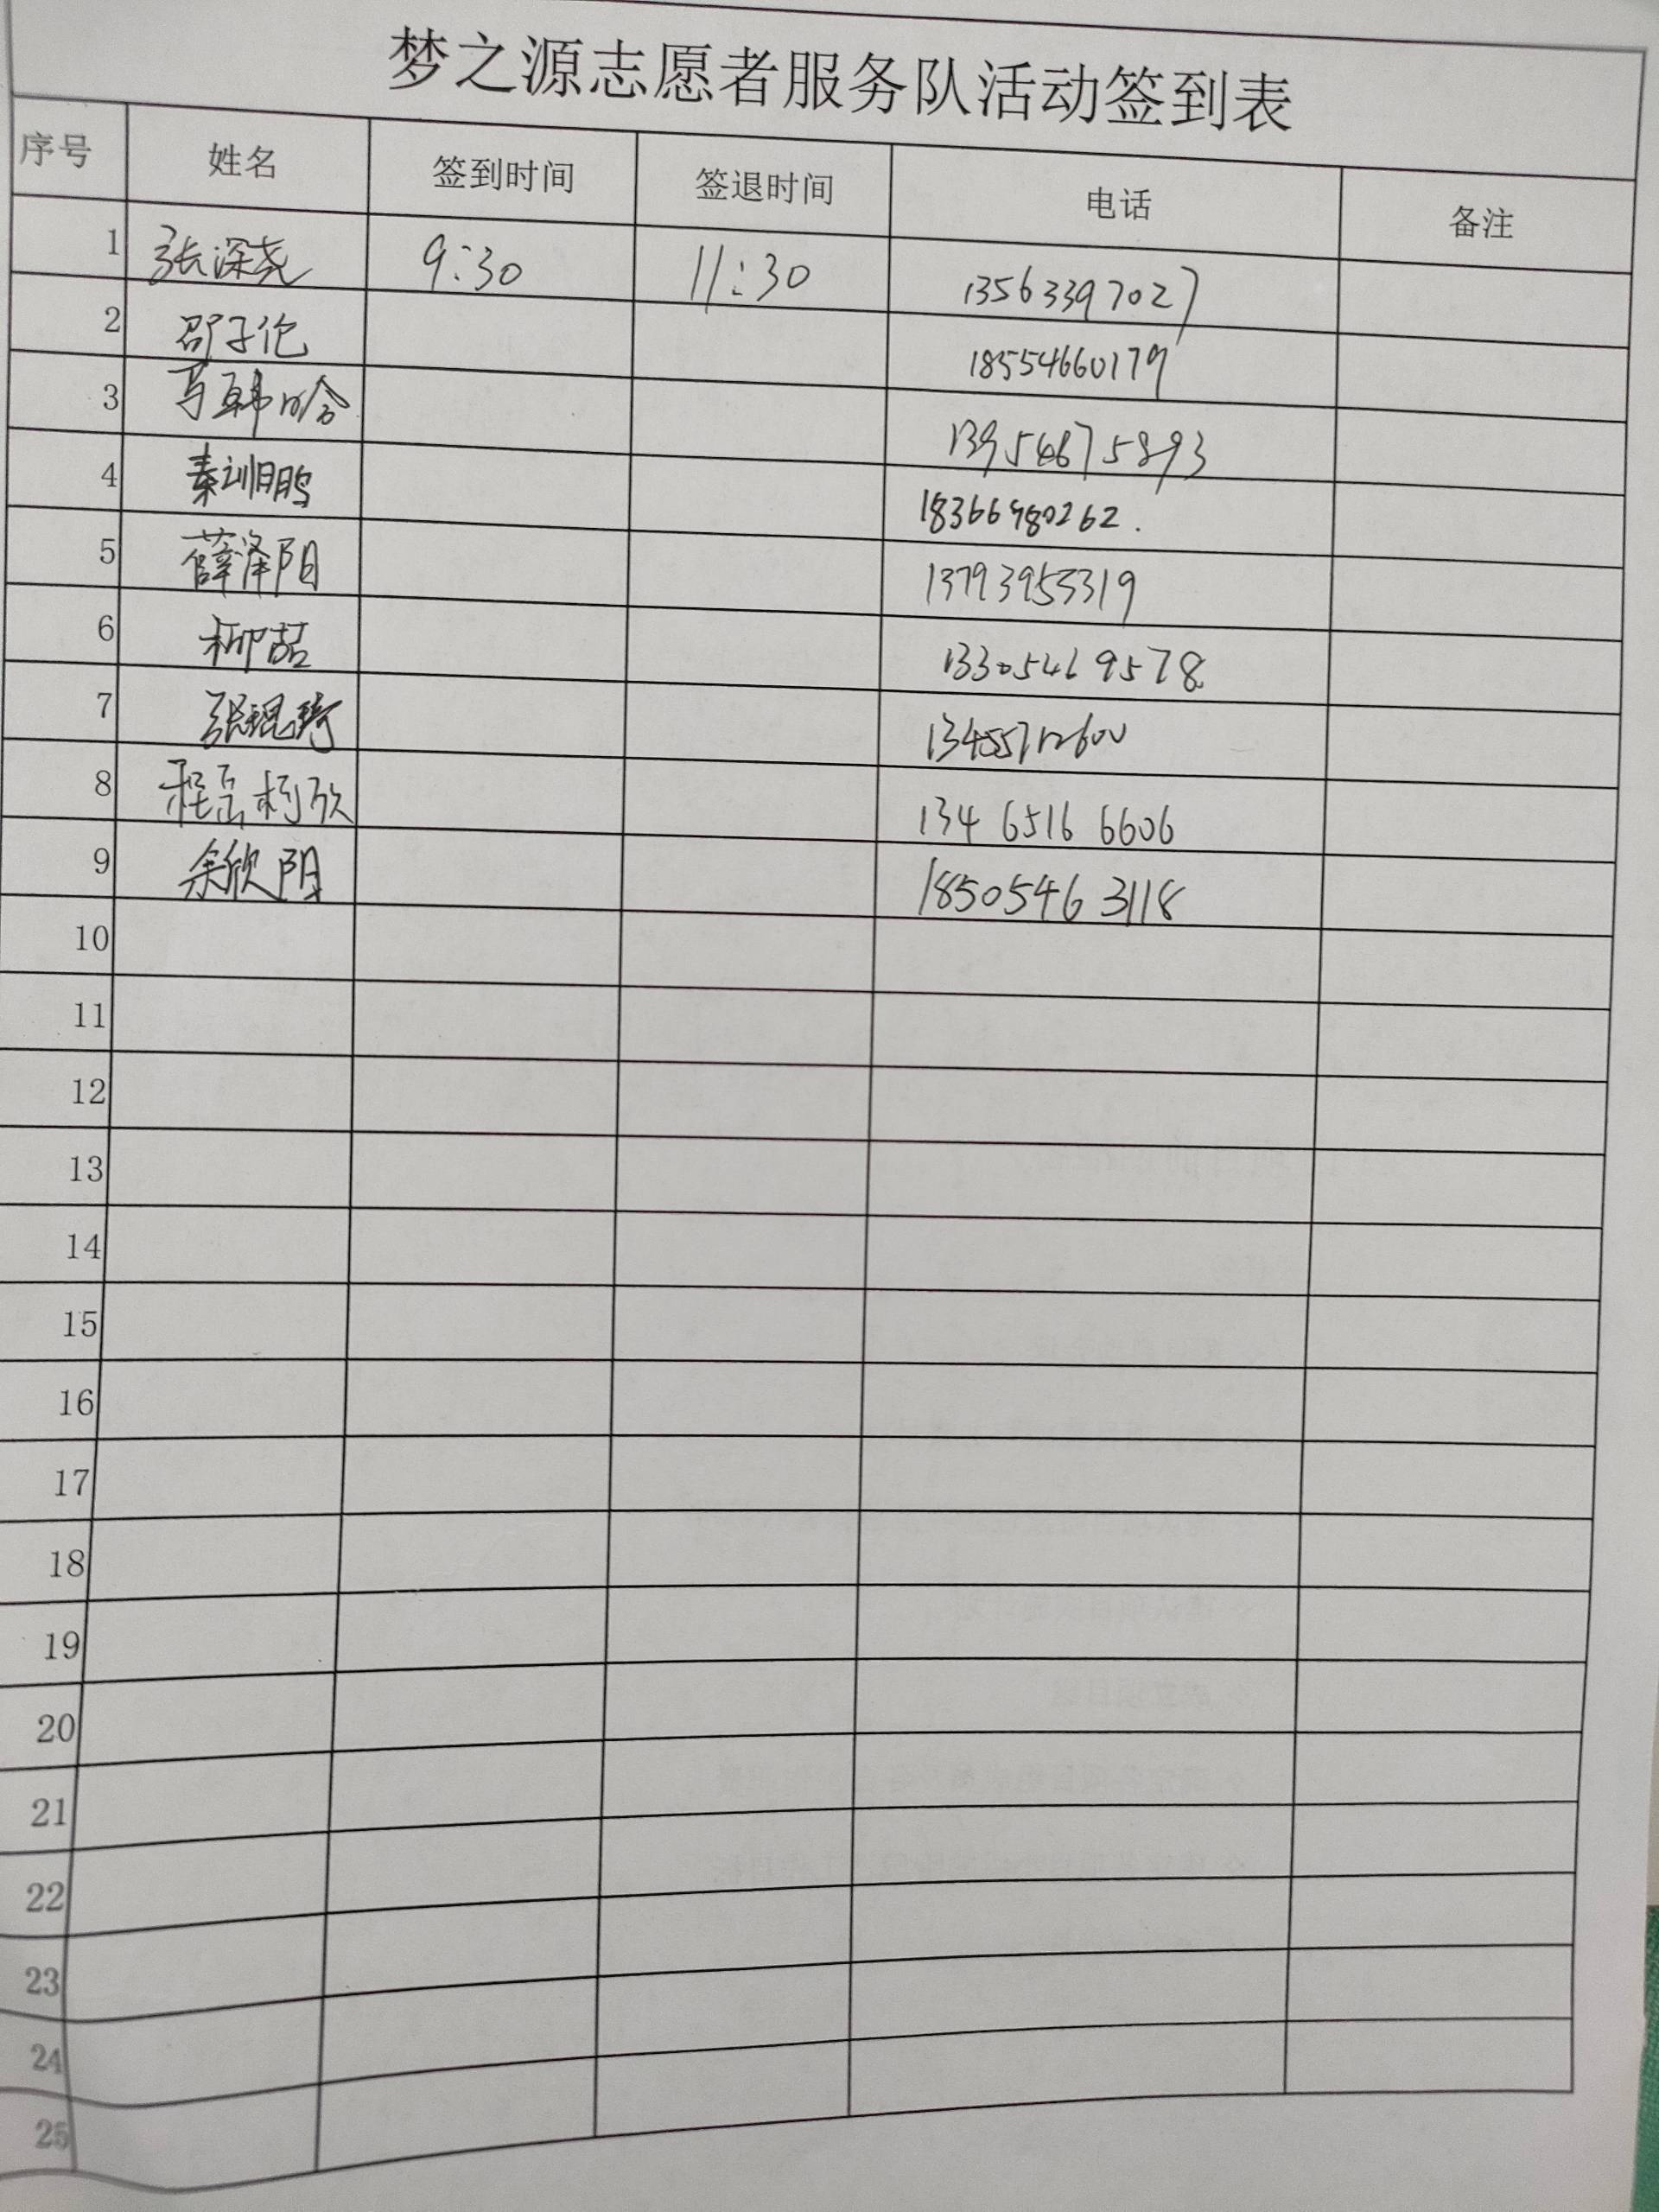 梦之源志愿者服务队活动签到表
序号 姓名 签到时间 签退时间 电话 备注
1 张深尧 9:30 11:30 13563397027
2 邵子伦 18554660179
3 马韩晗 13954675893
4 秦训鹏 18366980262.
5 薛泽阳 13793955319
6 柳喆 13305469578
7 张琨琦 13455712600
8 程岳柯欣 134 6516 6606
9 余欣阳 18505463118
10
11
12
13
14
15
16
17
18
19
20
21
22
23
24
25